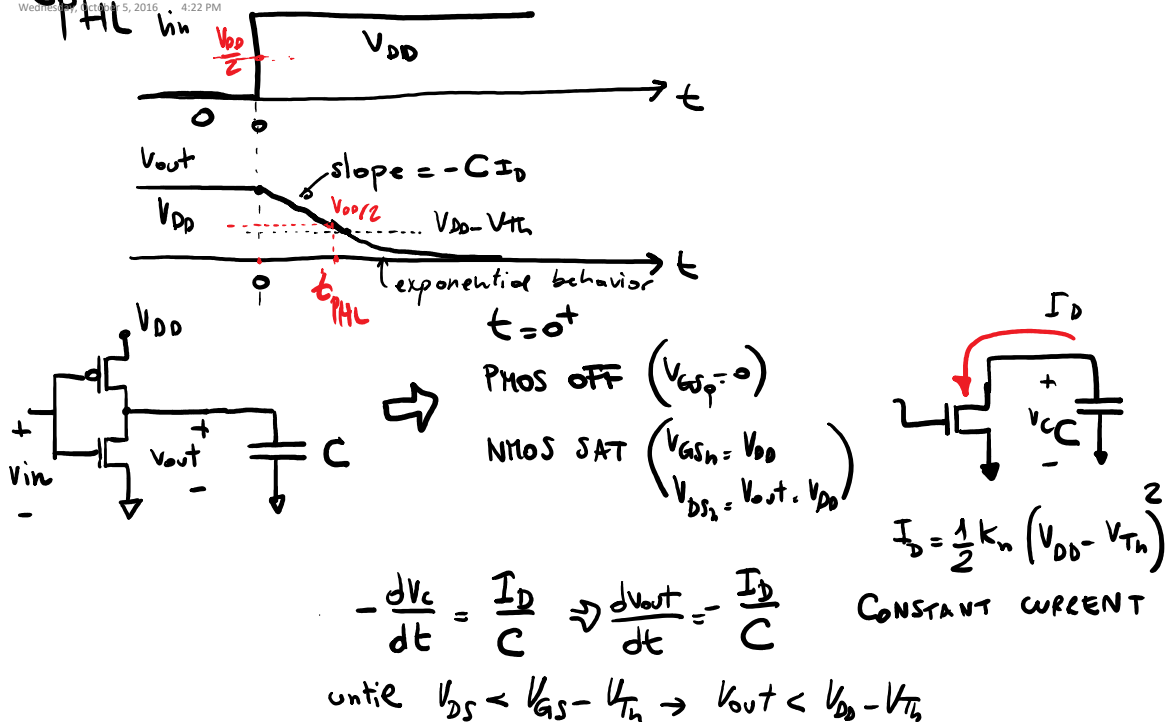 Wednesday, October 5, 2016 4:22 PM
tPHL Vin
V_DD/2
V_DD
t
0 0
Vout
slope = -C I_D
V_DD
V_DD/2
V_DD - V_Tn
t
0
t_PHL
exponential behavior
V_DD
t = 0⁺
PMOS OFF (V_GSp = 0)
NMOS SAT (V_GSn = V_DD
V_DSn = Vout = V_DD)
+
Vin
-
+
Vout
-
C
I_D
+
v_C C
-
I_D = 1/2 k_n (V_DD - V_Tn)²
CONSTANT CURRENT
- dVc/dt = I_D/C ⇒ dVout/dt = - I_D/C
until V_DS < V_GS - V_Tn → Vout < V_DD - V_Tn